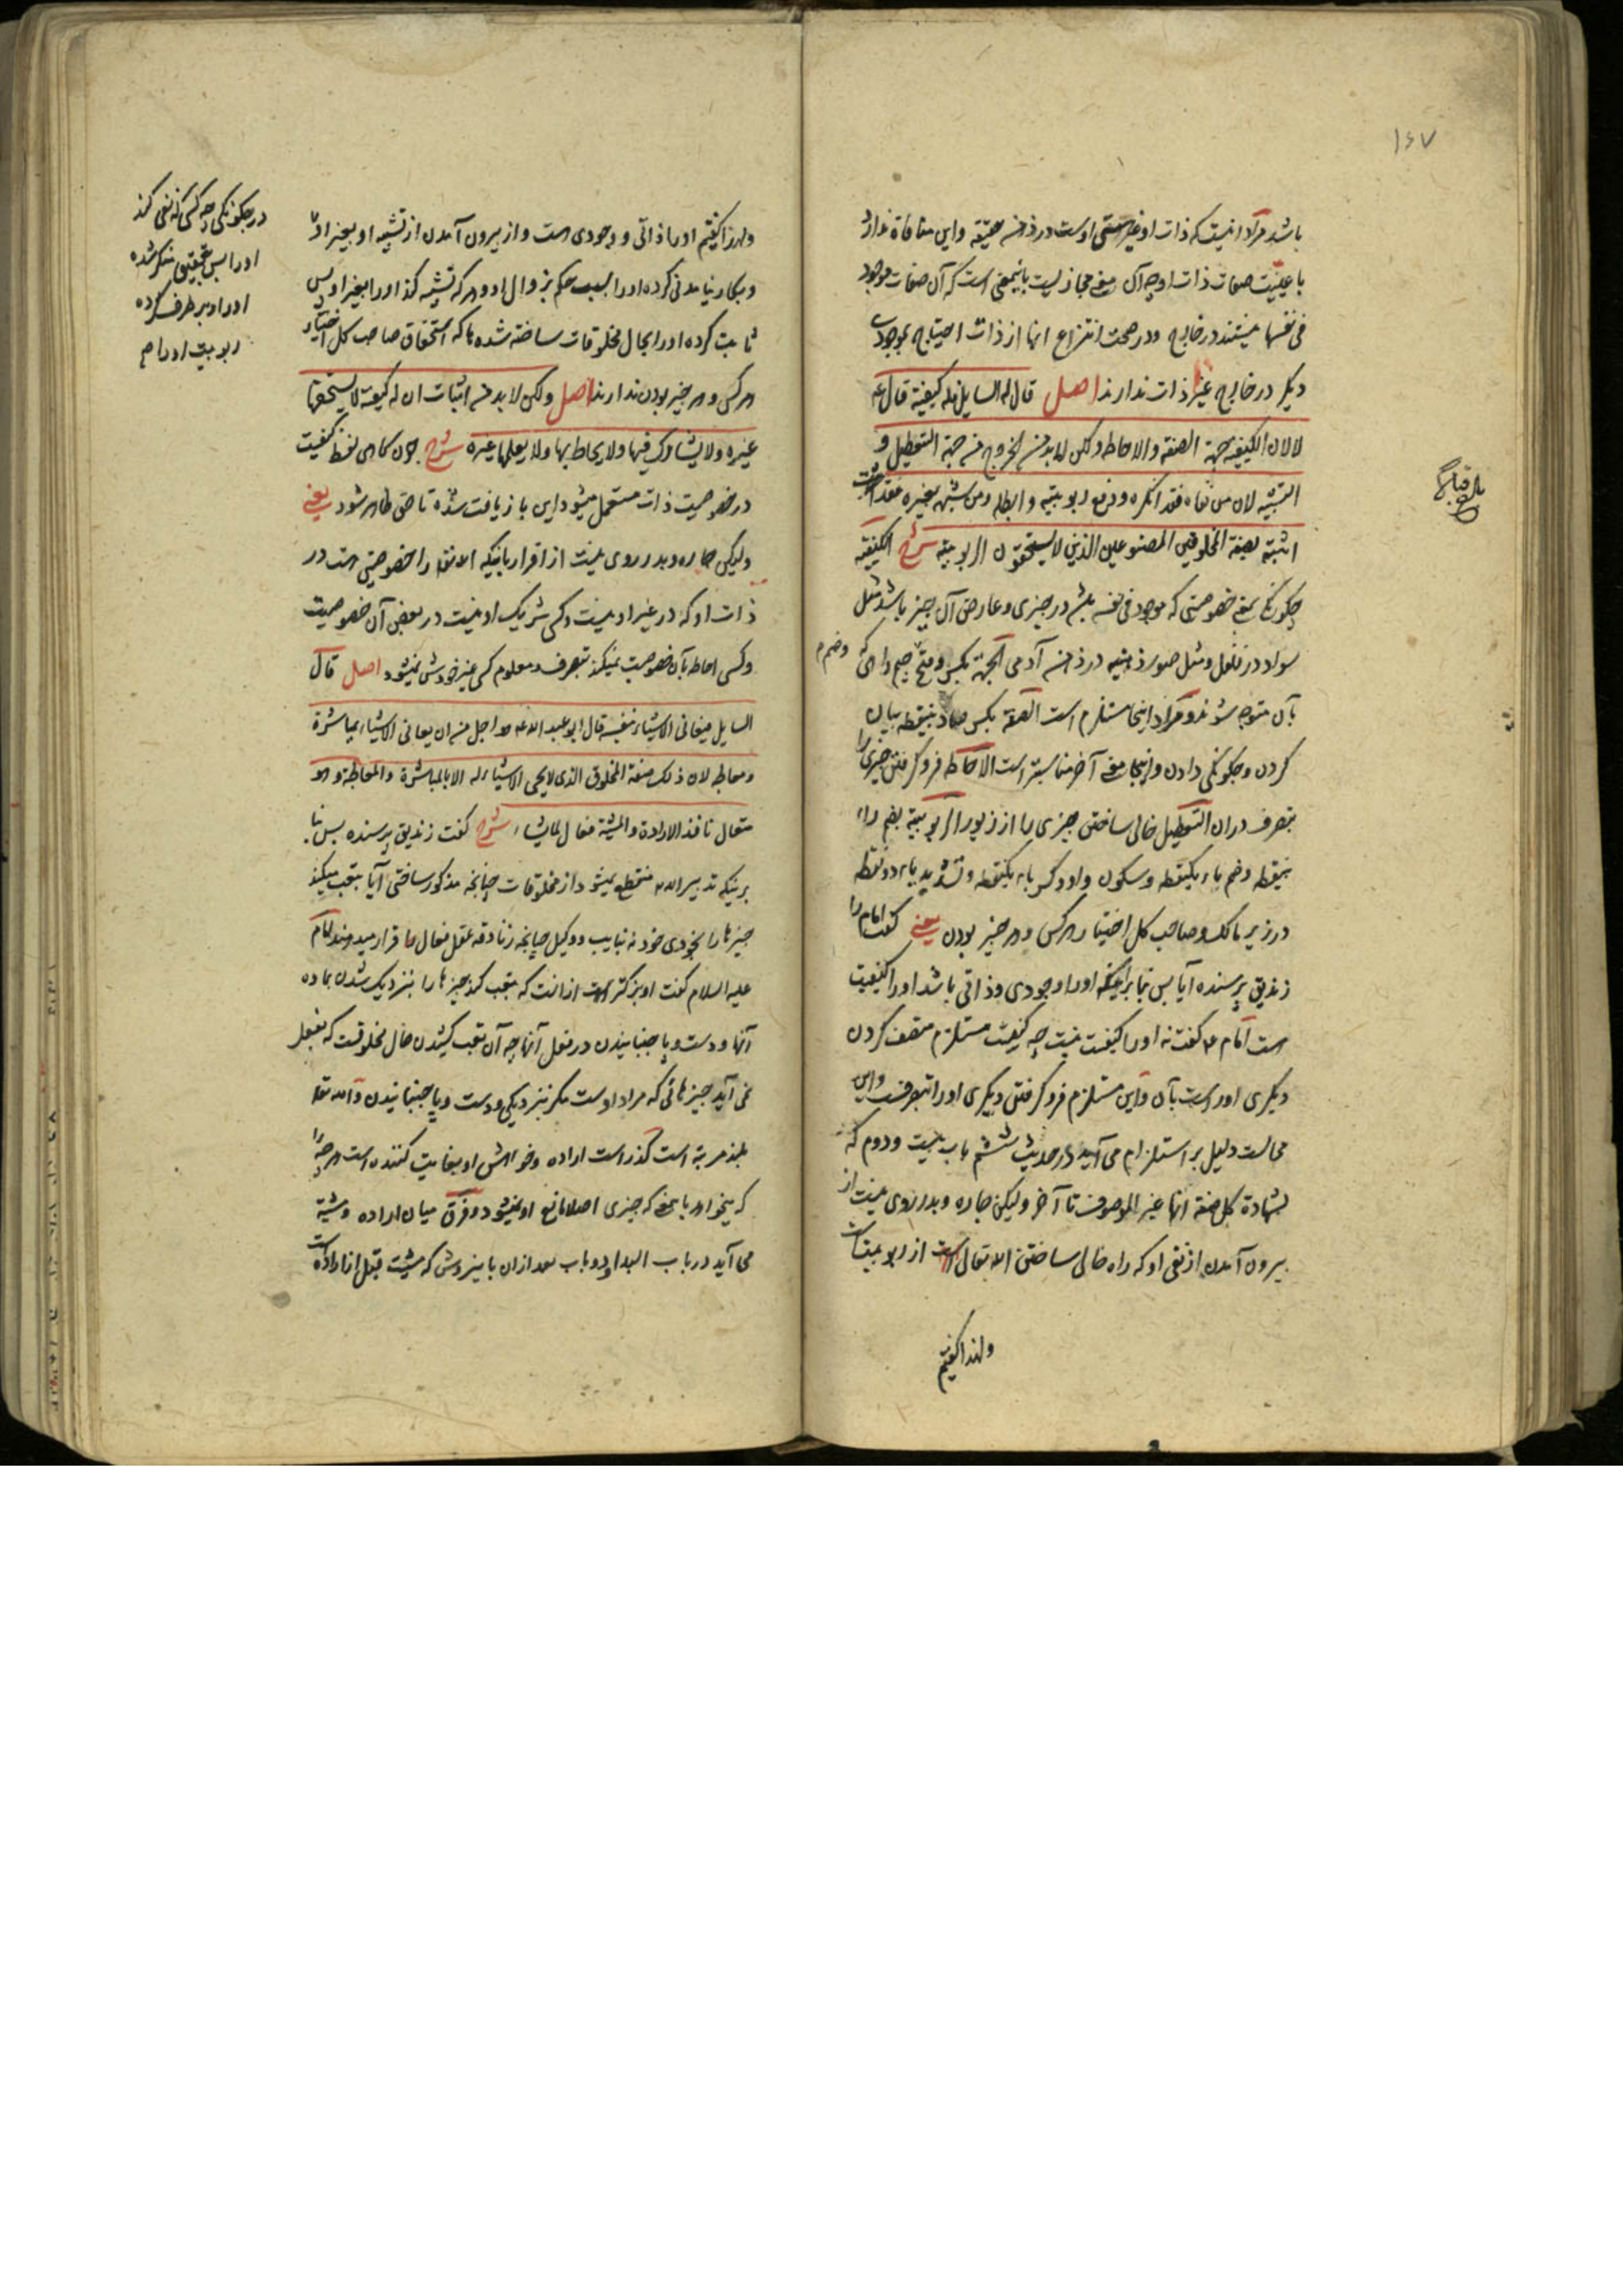 ۱۶۷
باشد مراد اینست که ذات او غیر صفتی اوست در ذهن حقیقة و این منافاة ندارد
با عینیت صفات ذات او چه آن معنی مجازیست باینمعنی است که آن صفات موجود
فی نفسها نیستند در خارج و در صحت انتزاع انها از ذات احتیاج بموجودی
دیگر در خارج غیر ذات ندارند اصل قال له السایل فله کیفیة قال ع
لا لان الکیفیة جهة الصفة والاحاطة ولکن لا بد من الخروج من جهة التعطیل و
التشبیه لان من نفاه فقد انکره ودفع ربوبیته وابطله ومن شبهه بغیره فقد
اثبته بصفة المخلوقین المصنوعین الذین لا یستحقون الربوبیة شرح الکیفیة
چکونکی بمعنی خصوصیتی که موجود فی نفسه باشد در چیزی و عارض آن چیز باشد مثل
سواد در فلفل و مثل صور ذهنیه در ذهن آدمی الجهة بکسر و فتح جیم راهی که
و ضم م
بآن متوجه شوند و مراد اینجا مستلزم است الصفة بکسر صاد بینقطه بیان
کردن و چکونکی دادن و اینجا معنی آخر مناسبتر است الاحاطة فرو کرفتن چیزی را
بتصرف در ان التعطیل خالی ساختن چیزی را از زیور الربوبیة بضم راء
بینقطه و ضم باء یکنقطه و سکون واو و کسر باء یکنقطه و تشدید یاء دو نقطه
در زیر مالک و صاحب کل اختیار هر کس و هر چیز بودن یعنی کفت امام را
زندیق پرسنده آیا پس بنا بر اینکه او را وجودی و ذاتی باشد او را کیفیت
است امام ع کفت نه او را کیفیت نیست چه کیفیت مستلزم متصف کردن
دیکری اوراست بآن و این مستلزم فرو کرفتن دیکری او را بتصرفست و این
محالست دلیل بر استلزام می آید در حدیث ششم باب بیست و دوم که
لشهادة کل صفة انها غیر الموصوف تا آخر ولیکن چاره و بدر روی نیست از
بیرون آمدن از نفی او که راه خالی ساختن الله تعالی است از ربوبیت
ولهذا کفتم
ولهذا کفتم او را ذاتی و وجودی هست و از بیرون آمدن از تشبیه او بغیر او
و بکار نیامدنی کرده او را بسبب حکم بزوال او و هر که تشبیه کند او را بغیر او پس
ثابت کرده او را بحال مخلوقات ساخته شده ها که استحقاق صاحب کل اختیار
هر کس و هر چیز بودن ندارند اصل ولکن لا بد من اثبات ان له کیفیة لا یستحقها
غیره ولا یشارک فیها ولا یحاط بها ولا یعلمها غیره شرح چون کاهی لفظ کیفیت
در خصوصیت ذات مستعمل میشود این باز یافت شده تا حق ظاهر شود یعنی
ولیکن چاره و بدر روی نیست از اقرار باینکه الله تعالی را خصوصیتی هست در
ذات او که در غیر او نیست و کسی شریک او نیست در بعض آن خصوصیت
و کسی احاطه بآن خصوصیت نمیکند بتصرف و معلوم کسی غیر خودش نمیشود اصل قال
السایل فیعانی الاشیاء بنفسه قال ابو عبد الله ع هو اجل من ان یعانی الاشیاء بمباشرة
ومعالجة لان ذلک صفة المخلوق الذی لا یجیء الاشیاء له الا بالمباشرة والمعالجة وهو
متعال نافذ الارادة والمشیة فعال لما یشاء شرح کفت زندیق پرسنده پس بنا
بر اینکه تدبیر الله منقطع نمیشود از مخلوقات چنانچه مذکور ساختی آیا بتعب میکند
چیزها را بخودی خود نه بنایب و وکیل چنانچه زنادقه عقل فعال را قرار میدهند امام
علیه السلام کفت او بزرکتر است از انکه بتعب کند چیزها را بنزدیک شدن بماده
آنها و دست و پا جنبانیدن در فعل آنها چه آن تعب کشیدن حال مخلوقست که بفعل
نمی آید چیزهائی که مراد اوست مکر بنزدیکی و دست و پا جنبانیدن و الله تعالی
بلند مرتبه است کذراست اراده و خواهش او بغایت کننده است هر چه را
که میخواهد بامعنی که چیزی اصلا مانع او نمیشود و فرق میان اراده و مشیة
می آید در باب البداء و در باب بعد از ان باین روش که مشیت قبل از ارادة است
در چکونکی چه کسی که نفی کند
او را پس بتحقیق منکر شده
او را و برطرف کرده
ربوبیت او را م